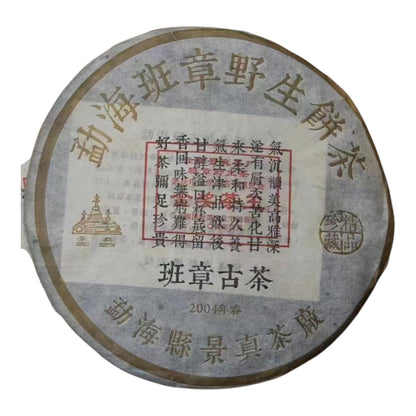 勐海班章野生餅茶
氣沉韻美高雅深
有厚化甘
來柔和持久
氣生津品飲後
甘醇溢杯留
香回味無窮難得
好茶彌足珍貴
班章古茶
2004年春
勐海縣景真茶廠